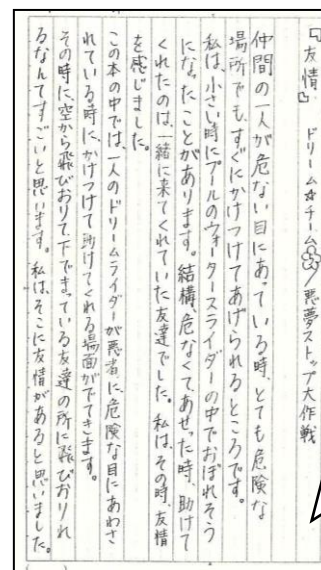 『友情』 ドリーム☆チーム⑧/悪夢ストップ大作戦
仲間の一人が危ない目にあっている時、とても危険な
場所でも、すぐにかけつけてあげられるところです。
私は、小さい時にプールのウォータースライダーの中でおぼれそう
になったことがあります。結構、危なくて、あせった時、助けて
くれたのは、一緒に来てくれていた友達でした。私は、その時、友情
を感じました。
この本の中では、一人のドリームライダーが悪者に、危険な目にあわさ
れている時に、かけつけて助けてくれる場面がでてきます。
その時に、空から飛びおりて、下でまっている友達の所に飛びおりれ
るなんてすごいと思います。私は、そこに友情があると思いました。